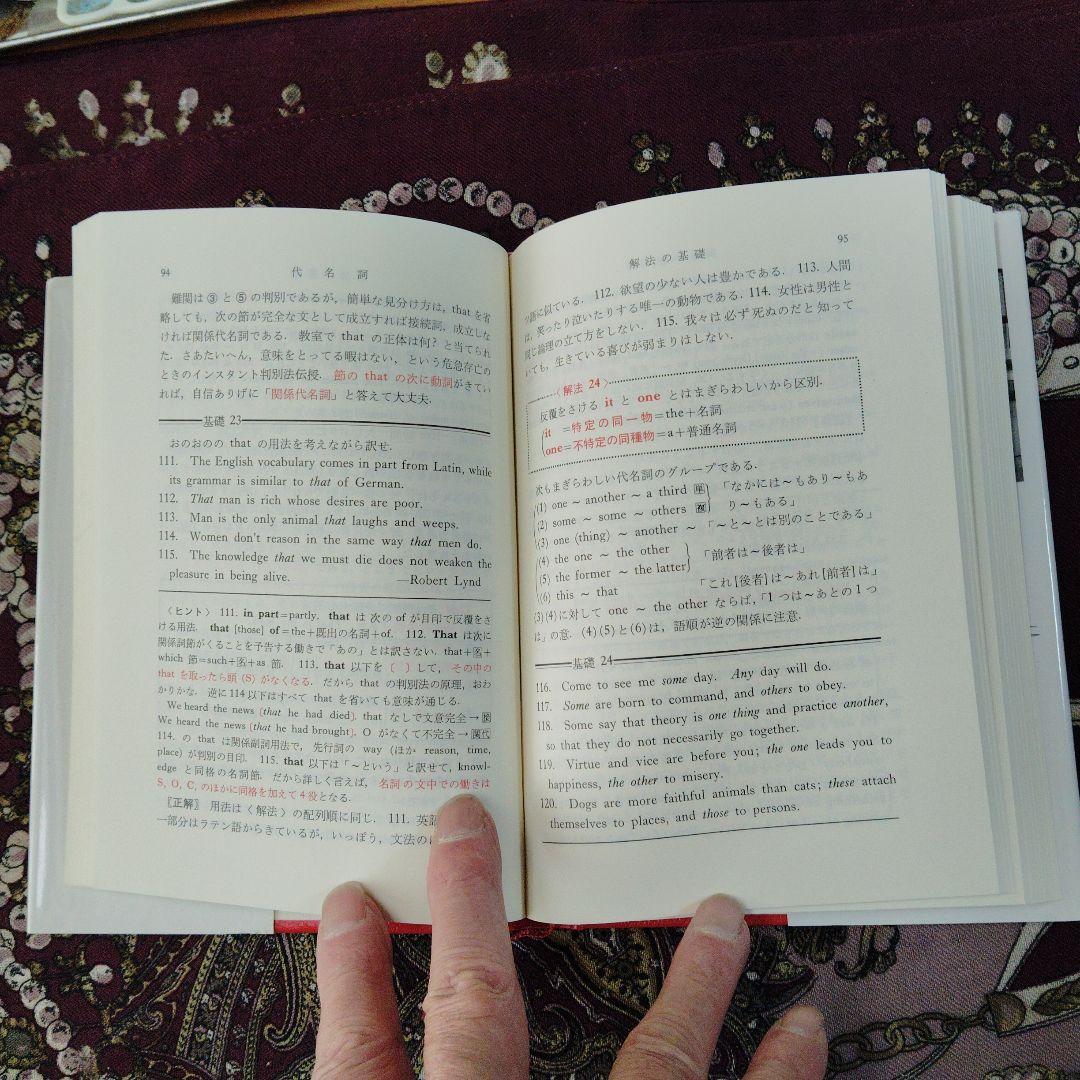 94 代名詞
難関は③と⑤の判別であるが，簡単な見分け方は，that を省
略しても，次の節が完全な文として成立すれば接続詞，成立しな
ければ関係代名詞である．教室で that の正体は何? と当てられ
た．さあたいへん，意味をとってる暇はない，という危急存亡の
ときのインスタント判別法伝授．節の that の次に動詞がきてい
れば，自信ありげに「関係代名詞」と答えて大丈夫．
基礎 23
おのおのの that の用法を考えながら訳せ．
111. The English vocabulary comes in part from Latin, while
its grammar is similar to that of German.
112. That man is rich whose desires are poor.
113. Man is the only animal that laughs and weeps.
114. Women don't reason in the same way that men do.
115. The knowledge that we must die does not weaken the
pleasure in being alive. —Robert Lynd
〈ヒント〉 111. in part=partly. that は次の of が目印で反覆をさ
ける用法． that [those] of=the+既出の名詞+of. 112. That は次に
関係詞節がくることを予告する働きで「あの」とは訳さない．that+名+
which 節=such+名+as 節． 113. that 以下を〔 〕して，その中の
that を取ったら頭 (S) がなくなる．だから that の判別法の原理，おわ
かりかな．逆に 114 以下はすべて that を省いても意味が通じる．
We heard the news (that he had died). that なしで文意完全→接
We heard the news (that he had brought). O がなくて不完全→関代
114. の that は関係副詞用法で，先行詞の way (ほか reason, time,
place) が判別の目印． 115. that 以下は「～という」と訳せて，knowl-
edge と同格の名詞節．だから詳しく言えば，名詞の文中での働きは
S, O, C, のほかに同格を加えて 4 役となる．
〖正解〗 用法は〈解法〉の配列順に同じ． 111. 英語
一部分はラテン語からきているが，いっぽう，文法の
解法の基礎 95
語に似ている． 112. 欲望の少ない人は豊かである． 113. 人間
は，笑ったり泣いたりする唯一の動物である． 114. 女性は男性と
同じ論理の立て方をしない． 115. 我々は必ず死ぬのだと知って
いても，生きている喜びが弱まりはしない．
〈解法 24〉
反覆をさける it と one とはまぎらわしいから区別．
it =特定の同一物=the+名詞
one=不特定の同種物=a+普通名詞
次もまぎらわしい代名詞のグループである．
(1) one ～ another ～ a third 単 「なかには～もあり～もあ
(2) some ～ some ～ others 複 り～もある」
(3) one (thing) ～ another ～ 「～と～とは別のことである」
(4) the one ～ the other
(5) the former ～ the latter 「前者は～後者は」
(6) this ～ that 「これ[後者]は～あれ[前者]は」
(3)(4)に対して one ～ the other ならば，「1つは～あとの1つ
は」の意．(4)(5)と(6)は，語順が逆の関係に注意．
基礎 24
116. Come to see me some day. Any day will do.
117. Some are born to command, and others to obey.
118. Some say that theory is one thing and practice another,
so that they do not necessarily go together.
119. Virtue and vice are before you; the one leads you to
happiness, the other to misery.
120. Dogs are more faithful animals than cats; these attach
themselves to places, and those to persons.